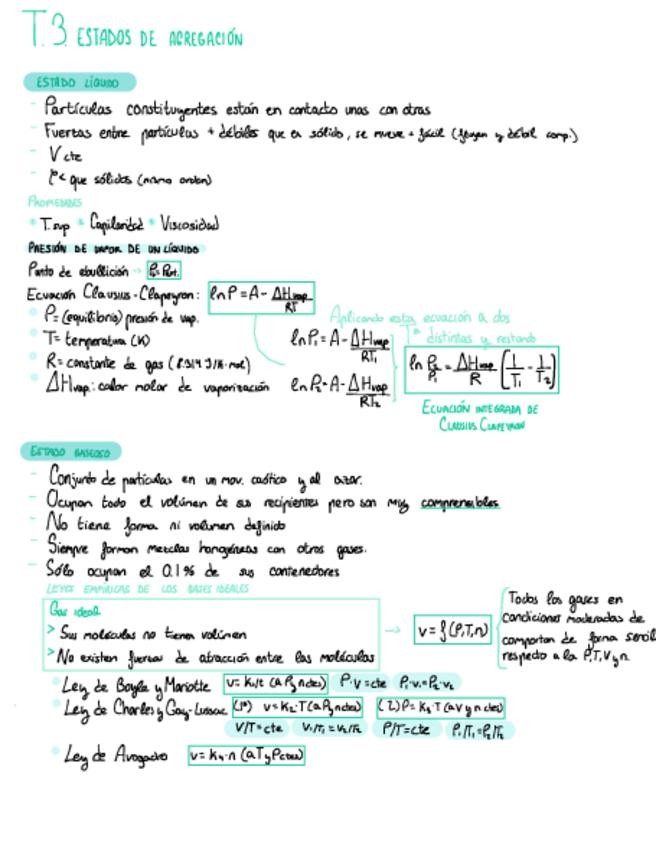 T.3. ESTADOS DE AGREGACIÓN
ESTADO LÍQUIDO
- Partículas constituyentes están en contacto unas con otras
- Fuerzas entre partículas + débiles que en sólido, se mueve + fácil (fluyen y débil comp.)
- V cte
- ρ < que sólidos (mismo orden)
PROPIEDADES
* T. sup * Capilaridad * Viscosidad
PRESIÓN DE VAPOR DE UN LÍQUIDO
Punto de ebullición →
Ecuación Clausius-Clapeyron: ln P = A - ΔHvap/RT
P = (equilibrio) presión de vap.
T = temperatura (K)
R = constante de gas (8.314 J/K·mol)
ΔHvap: calor molar de vaporización
Aplicando esta ecuación a dos
Tª distintas y restando
ln P₁ = A - ΔHvap/RT₁
ln P₂ = A - ΔHvap/RT₂
ln P₂/P₁ = ΔHvap/R (1/T₁ - 1/T₂)
ECUACIÓN INTEGRADA DE
CLAUSIUS CLAPEYRON
ESTADO GASEOSO
- Conjunto de partículas en un mov. caótico y al azar.
- Ocupan todo el volúmen de sus recipientes pero son muy compresibles
- No tiene forma ni volumen definido
- Siempre forman mezclas homogéneas con otros gases.
- Sólo ocupan el 0.1% de sus contenedores
LEYES EMPÍRICAS DE LOS GASES IDEALES
Gas ideal
> Sus moléculas no tienen volúmen
> No existen fuerzas de atracción entre las moléculas
→ V = f (P,T,n)
Todos los gases en
condiciones moderadas de
comportan de forma
respecto a la P,T,V y n
Ley de Boyle y Mariotte P·V = cte P₁·V₁ = P₂·V₂
Ley de Charles y Gay-Lussac (1ª) V = K₂·T (a P y n ctes) (2) P = K₃·T (a V y n ctes)
V/T = cte V₁/T₁ = V₂/T₂ P/T = cte P₁/T₁ = P₂/T₂
Ley de Avogadro V = K₄·n (a T y P ctes)